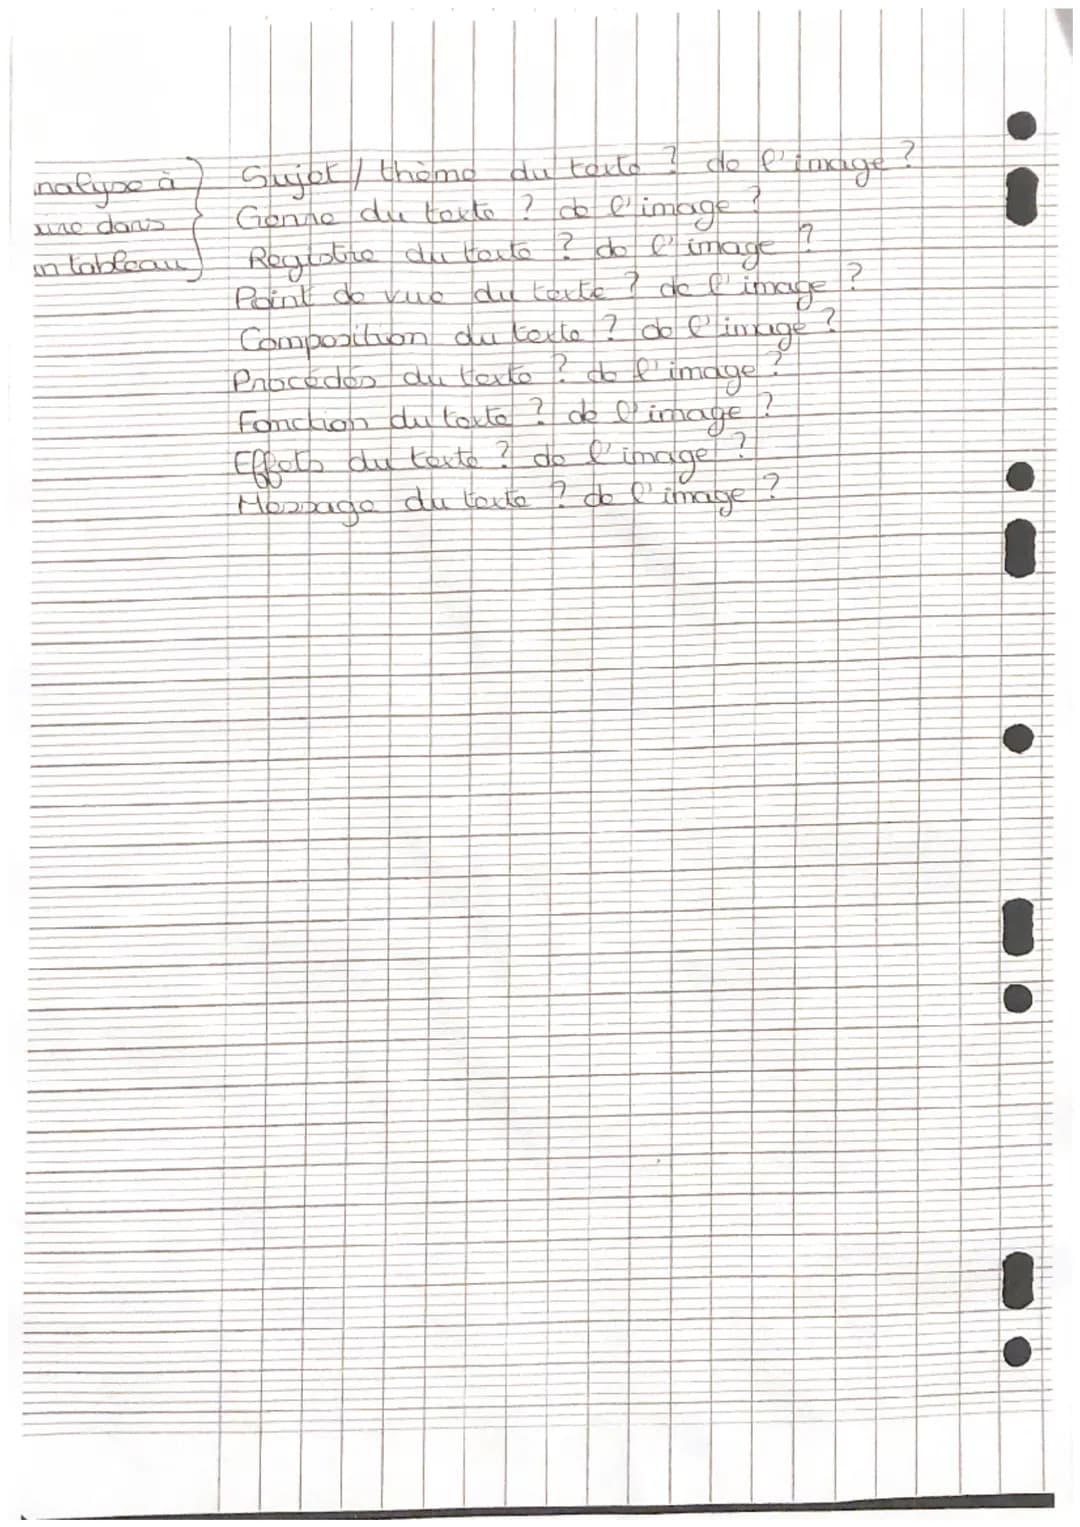 nalyse à
Sujet / thème du texte ? de l'image ?
uire dans
Genre du texte ? de l'image ?
un tableau
Registre du texte ? de l'image ?
Point de vue du texte ? de l'image ?
Composition du texte ? de l'image ?
Procédés du texte ? de l'image ?
Fonction du texte ? de l'image ?
Effets du texte ? de l'image ?
Message du texte ? de l'image ?